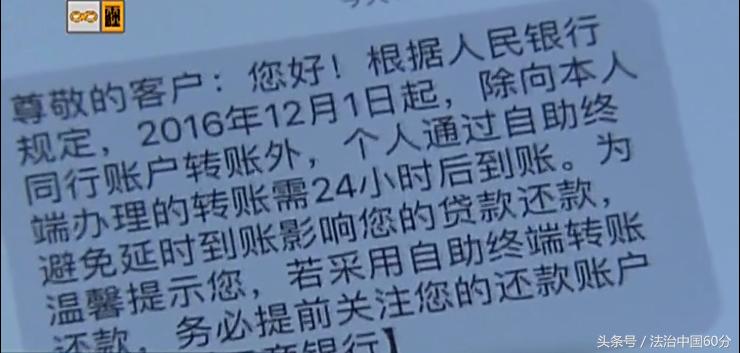 尊敬的客户：您好！根据人民银行
规定，2016年12月1日起，除向本人
同行账户转账外，个人通过自助终
端办理的转账需24小时后到账。为
避免延时到账影响您的贷款还款，
温馨提示您，若采用自助终端转账
还款，务必提前关注您的还款账户
商银行】
头条号／法治中国60分